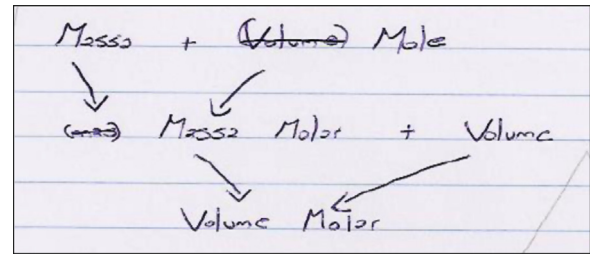 Massa + (Volume) Mole
Massa Molar + Volume
Volume Molar